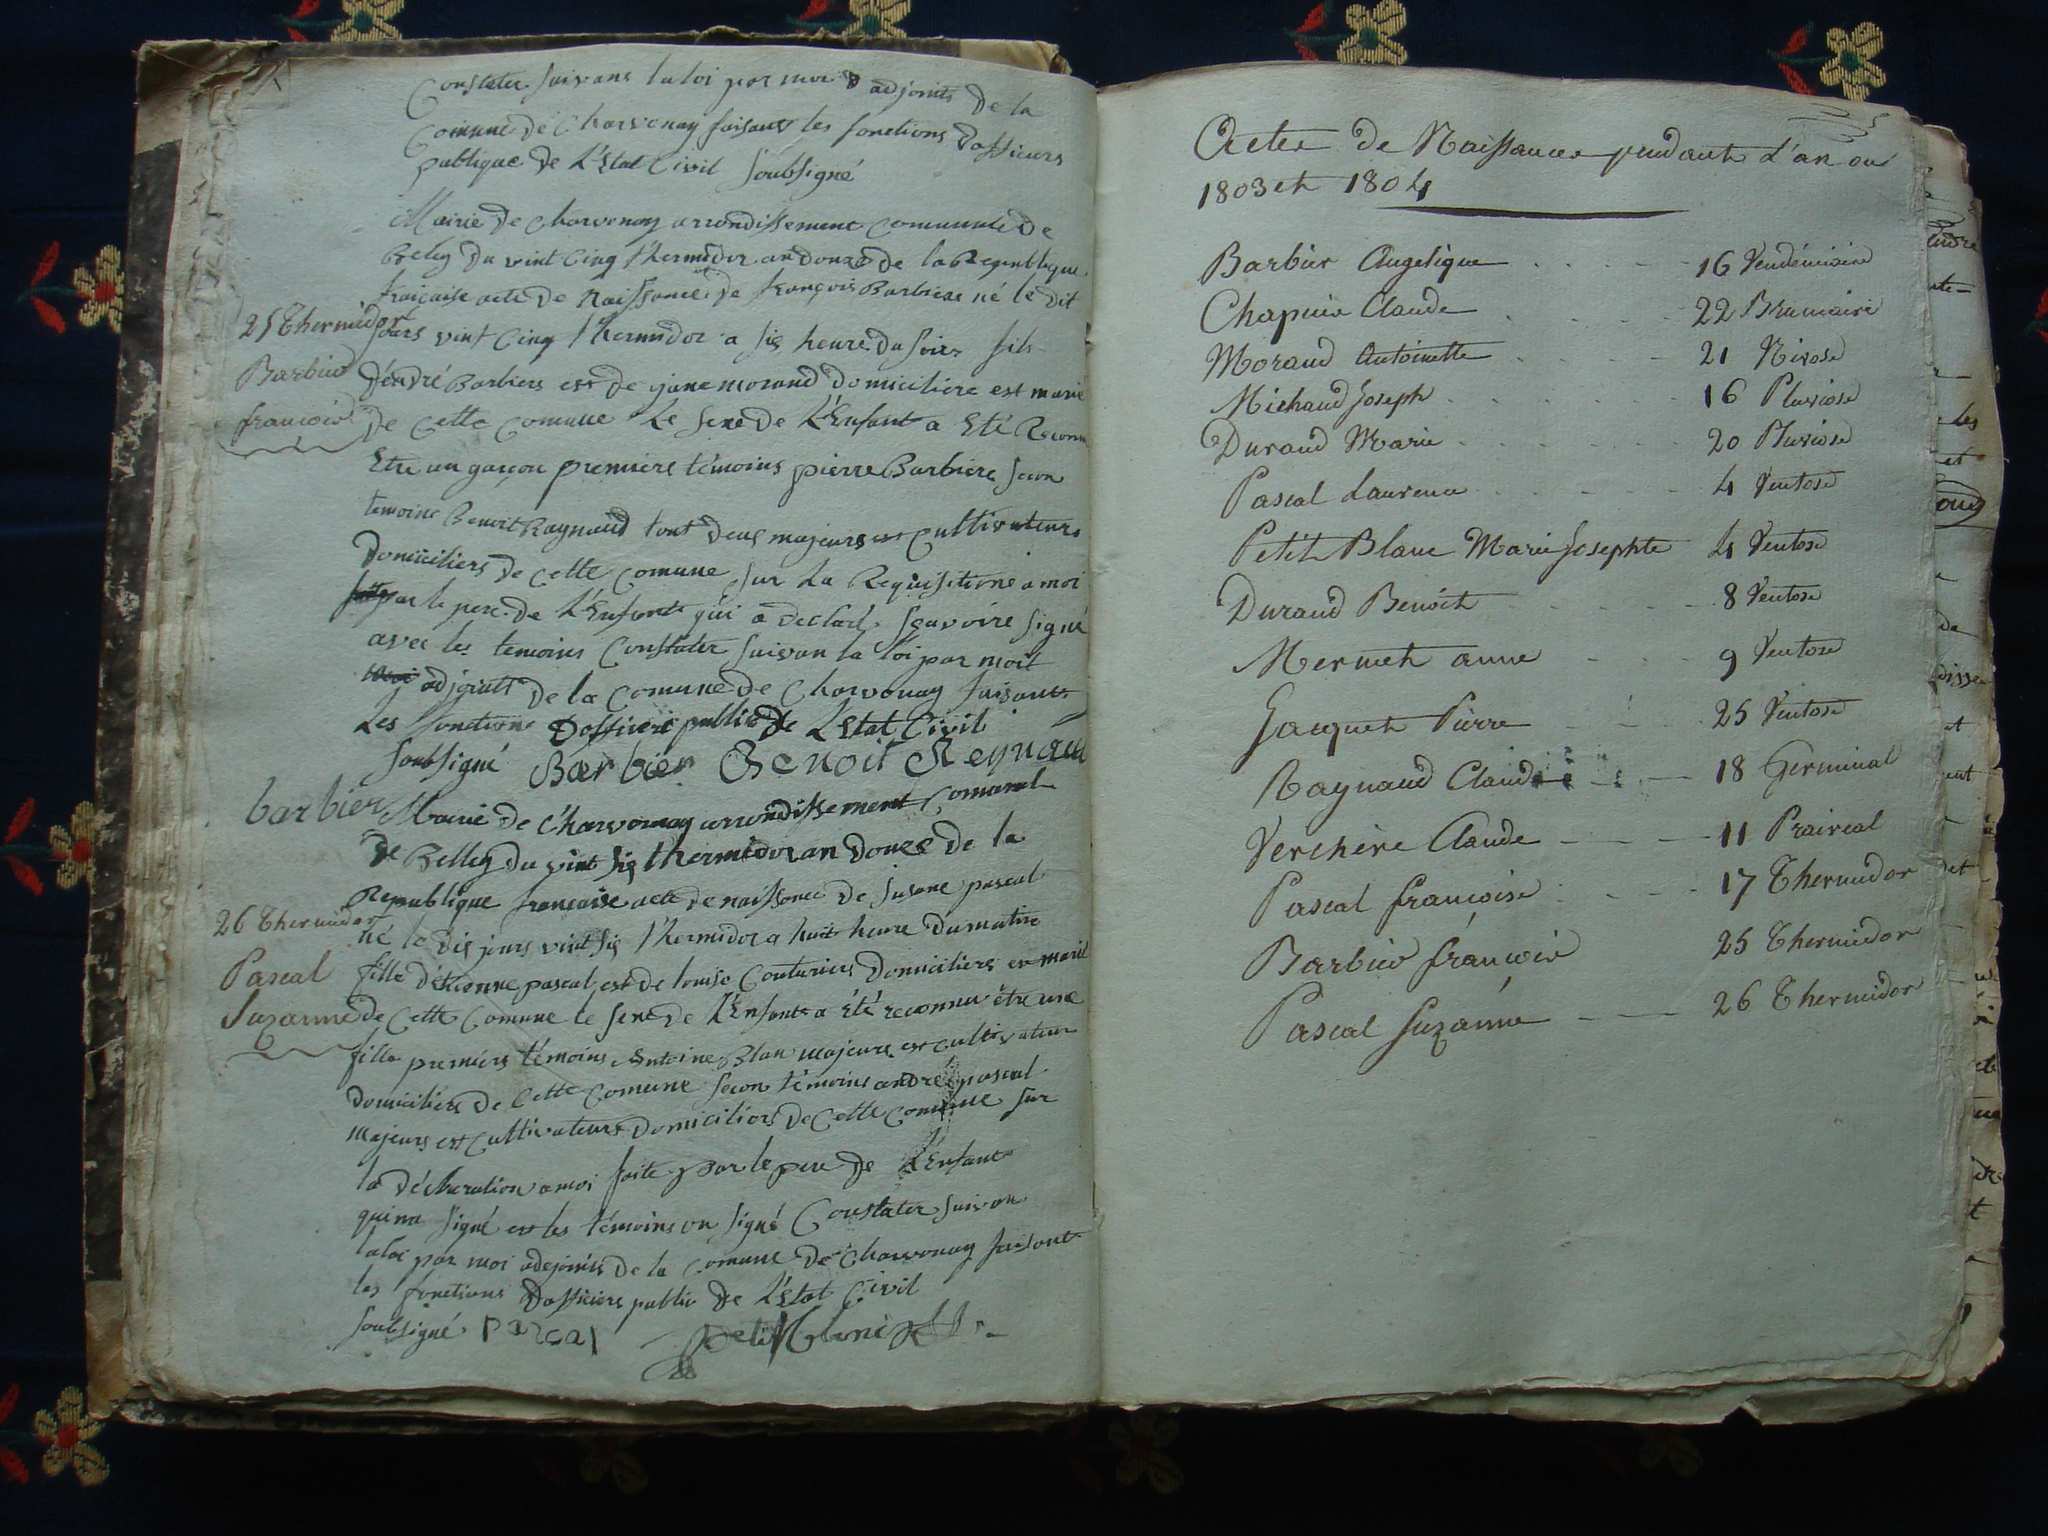 Constater suivans la loi par moi adjoints de la
Comune de Charvonay faisant les fonctions Dofficiers
publique de L'Etat Civil Soubsigné
Mairie de Charvonay arrondissement Communale De
Belley Du vint Cinq thermidor an douze de la Republique
fraiçaise acte de Naissance de françois Barbiere né le dit
25 Thermidor
jours vint Cinq thermidor a sis heure Du soire fils
Barbier
D'éndré Barbiers est de jane morand Domiciliere est marié
françois
De Cette Comune Le sexe De L'Enfant a Eté Reconu
Etre un garçon premiere témoins pierre Barbiere secon
temoins Benoit Raynaud tout Deus majeurs est Cultivateurs
Domiciliers De Cette Comune sur La Requisitione a moi
par le pere De L'Enfant qui a Declaré sçavoire signé
avec les temoins Constater suivan la loi par moit
adjoints De la Comune De Charvonay faisant
Les fonctions Dofficiere public De L'Etat Civil
soubsigné Barbier Benoit Reynaud
barbier
Mairie De Charvonay arrondissement Comunal
De Belley Du vint sis thermidor an Douze De la
Republique francaise acte De naissance De Susane pascal
26 Thermidor
né le Dis jours vint sis thermidor a huit heure Du matin
Pascal
fille D'étienne pascal est De louise Couturiers Domiciliers et marié
Suzanne
De Cette Comune le sexe De L'Enfant a Eté reconnu être une
fille premiers témoins Antoine Blan majeure est cultivateur
Domiciliére De Cette Comune secon témoins andré pascal
majeurs est Cultivateurs Domiciliers De Cette Comune sur
la Déclaration a moi faite par le pere De L'Enfant
qui na signé est les témoins on signé Constater suivan
la loi par moi adejoints De la Comune De Charvonay faisant
les fonctions Dofficiers public De L'Etat Civil
soubsigné pascal petitblanc
Actes de Naissances pendant L'an ou
1803 et 1804
Barbier Angelique 16 Vendémiaire
Chapuis Claude 22 Brumaire
Morand Antoinette 21 Nivose
Michaud Joseph 16 Pluviose
Durand Marie 20 Pluviose
Pascal Laurence 4 Ventose
Petit Blanc Marie Josephte 4 Ventose
Durand Benoit 8 Ventose
Mermet anne 9 Ventose
Jacquet Pierre 25 Ventose
Raynaud Claude 18 Germinal
Verchère Claude 11 Prairéal
Pascal françoise 17 Thermidor
Barbier françois 25 Thermidor
Pascal Suzanne 26 Thermidor